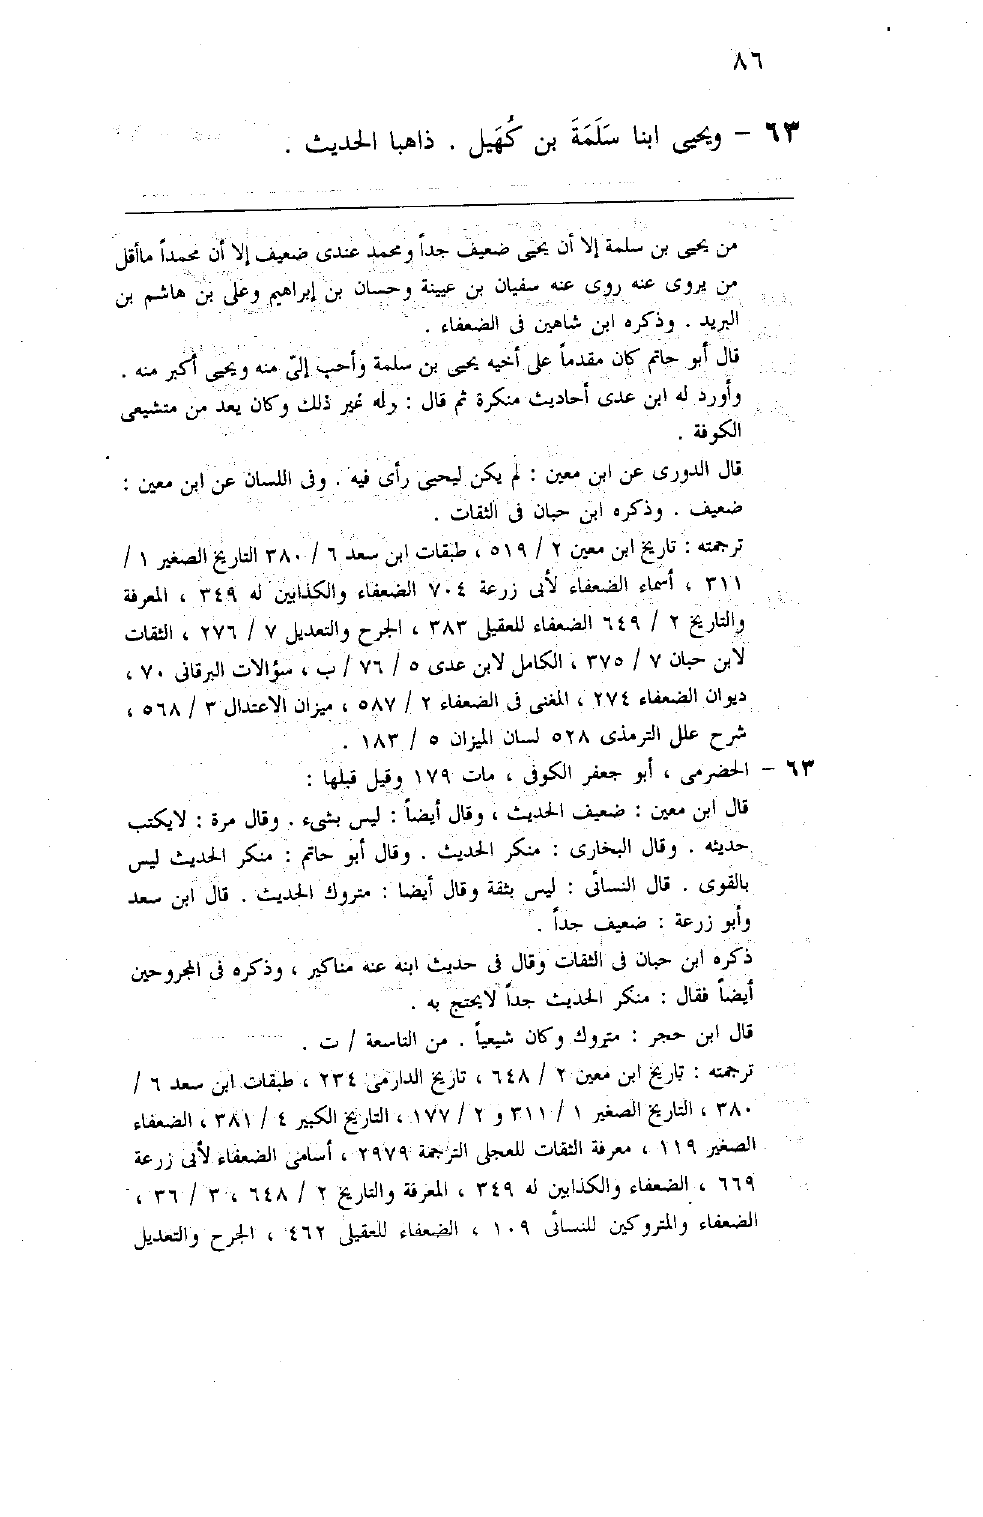 ٨٦
٦٣ – ويحيى ابنا سَلَمَةَ بن كُهَيل . ذاهبا الحديث .
من يحيى بن سلمة إلا أن يحيى ضعيف جداً ومحمد عندى ضعيف إلا أن محمداً ماأقل
من يروى عنه روى عنه سفيان بن عيينة وحسان بن إبراهيم وعلى بن هاشم بن
البريد . وذكره ابن شاهين فى الضعفاء .
قال أبو حاتم كان مقدماً على أخيه يحيى بن سلمة وأحب إلىّ منه ويحيى أكبر منه .
وأورد له ابن عدى أحاديث منكرة ثم قال : وله غير ذلك وكان يعد من متشيعى
الكوفة .
قال الدورى عن ابن معين : لم يكن ليحيى رأى فيه . وفى اللسان عن ابن معين :
ضعيف . وذكره ابن حبان فى الثقات .
ترجمته : تاريخ ابن معين ٢ / ٥١٩ ، طبقات ابن سعد ٦ / ٣٨٠ التاريخ الصغير ١ /
٣١١ ، أسماء الضعفاء لأبى زرعة ٧٠٤ الضعفاء والكذابين له ٣٤٩ ، المعرفة
والتاريخ ٢ / ٦٤٩ الضعفاء للعقيلى ٣٨٣ ، الجرح والتعديل ٧ / ٢٧٦ ، الثقات
لابن حبان ٧ / ٣٧٥ ، الكامل لابن عدى ٥ / ٧٦ / ب ، سؤالات البرقانى ٧٠ ،
ديوان الضعفاء ٢٧٤ ، المغنى فى الضعفاء ٢ / ٥٨٧ ، ميزان الاعتدال ٣ / ٥٦٨ ،
شرح علل الترمذى ٥٢٨ لسان الميزان ٥ / ١٨٣ .
٦٣ – الحضرمى ، أبو جعفر الكوفى ، مات ١٧٩ وقيل قبلها :
قال ابن معين : ضعيف الحديث ، وقال أيضاً : ليس بشىء . وقال مرة : لايكتب
حديثه . وقال البخارى : منكر الحديث . وقال أبو حاتم : منكر الحديث ليس
بالقوى . قال النسائى : ليس بثقة وقال أيضا : متروك الحديث . قال ابن سعد
وأبو زرعة : ضعيف جداً .
ذكره ابن حبان فى الثقات وقال فى حديث ابنه عنه مناكير ، وذكره فى المجروحين
أيضاً فقال : منكر الحديث جداً لايحتج به .
قال ابن حجر : متروك وكان شيعياً . من التاسعة / ت .
ترجمته : تاريخ ابن معين ٢ / ٦٤٨ ، تاريخ الدارمى ٢٣٤ ، طبقات ابن سعد ٦ /
٣٨٠ ، التاريخ الصغير ١ / ٣١١ و ٢ / ١٧٧ ، التاريخ الكبير ٤ / ٣٨١ ، الضعفاء
الصغير ١١٩ ، معرفة الثقات للعجلى الترجمة ٢٩٧٩ ، أسامى الضعفاء لأبى زرعة
٦٦٩ ، الضعفاء والكذابين له ٣٤٩ ، المعرفة والتاريخ ٢ / ٦٤٨ ، ٣ / ٣٦ ،
الضعفاء والمتروكين للنسائى ١٠٩ ، الضعفاء للعقيلى ٤٦٢ ، الجرح والتعديل